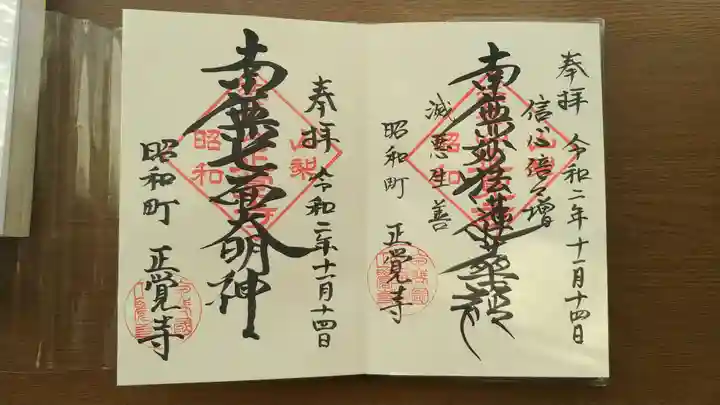 奉拝 令和二年十一月十四日
信心倍々増
南無妙法蓮華経
滅悪生善
昭和町 正覚寺
山梨
昭和
奉拝 令和二年十一月十四日
南無七面大明神
昭和町 正覚寺
山梨
昭和